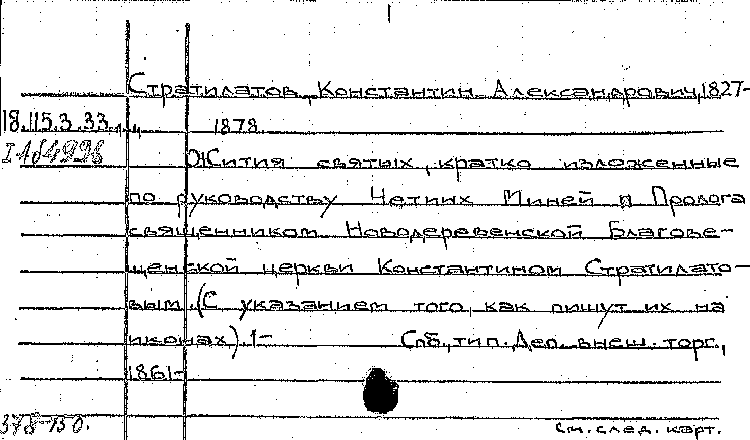 Стратилатов, Константин Александрович, 1827-
18.115.3.33 1878.
I 164998 Жития святых, кратко изложенные
по руководству Четиих Миней и Пролога
священником Новодеревенской Благове-
щенской церкви Константином Стратилато-
вым. (С указанием того, как пишут их на
иконах). 1- Спб., тип. Деп. внеш. торг.,
1861-
378-130. См. след. карт.